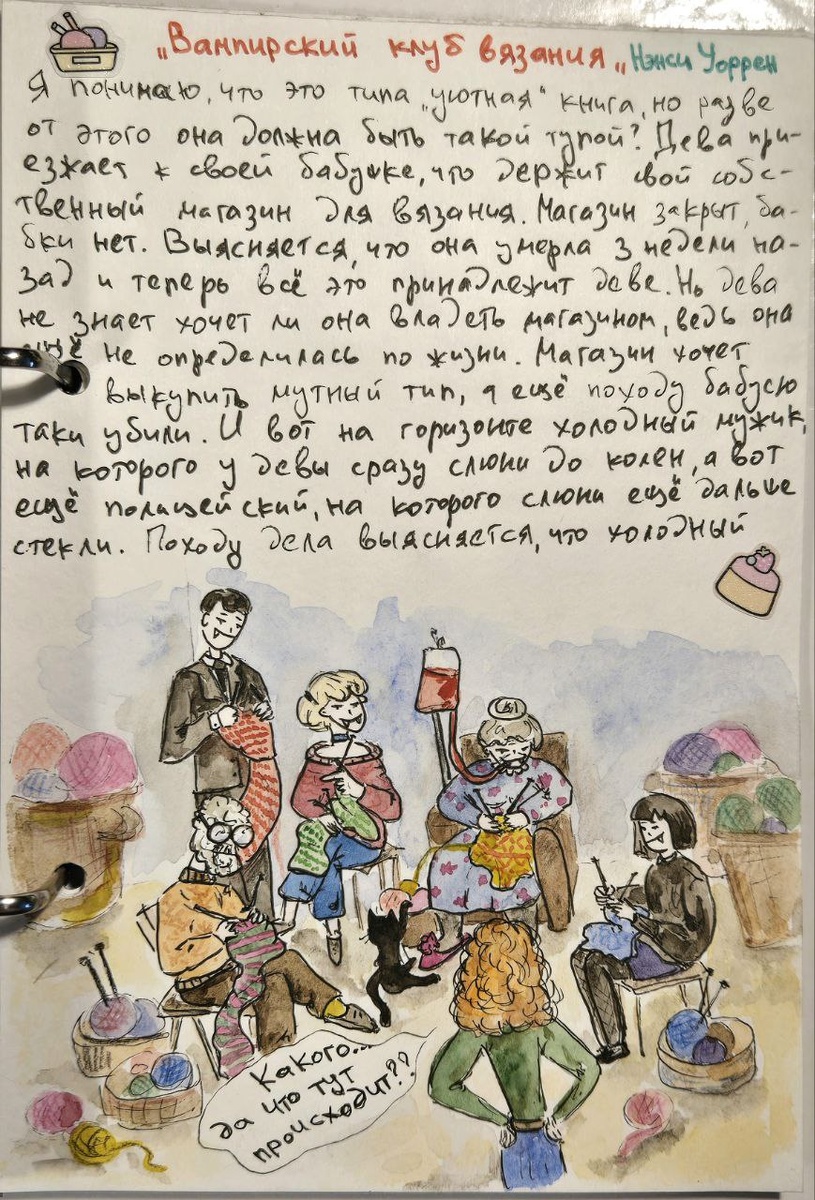 „Вампирский клуб вязания„ Нэнси Уоррен
Я понимаю, что это типа „уютная" книга, но разве
от этого она должна быть такой тупой? Дева при-
езжает к своей бабушке, что держит свой собс-
твенный магазин для вязания. Магазин закрыт, ба-
бки нет. Выясняется, что она умерла 3 недели на-
зад и теперь всё это принадлежит деве. Но дева
не знает хочет ли она владеть магазином, ведь она
ещё не определилась по жизни. Магазин хочет
выкупить мутный тип, а ещё походу бабусю
таки убили. И вот на горизонте холодный мужик,
на которого у девы сразу слюни до колен, а вот
ещё полицейский, на которого слюни ещё дальше
стекли. Походу дела выясняется, что холодный
Какого...
да что тут
происходит??